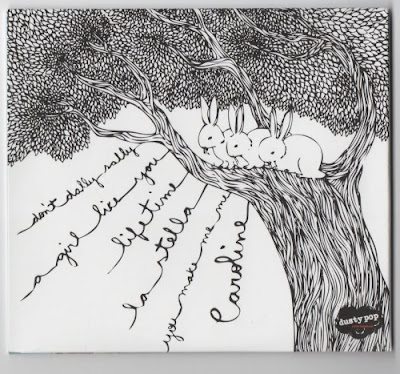 don't dally sally
a girl like you
lifetime
la stella
you make me me
Caroline
dustypop